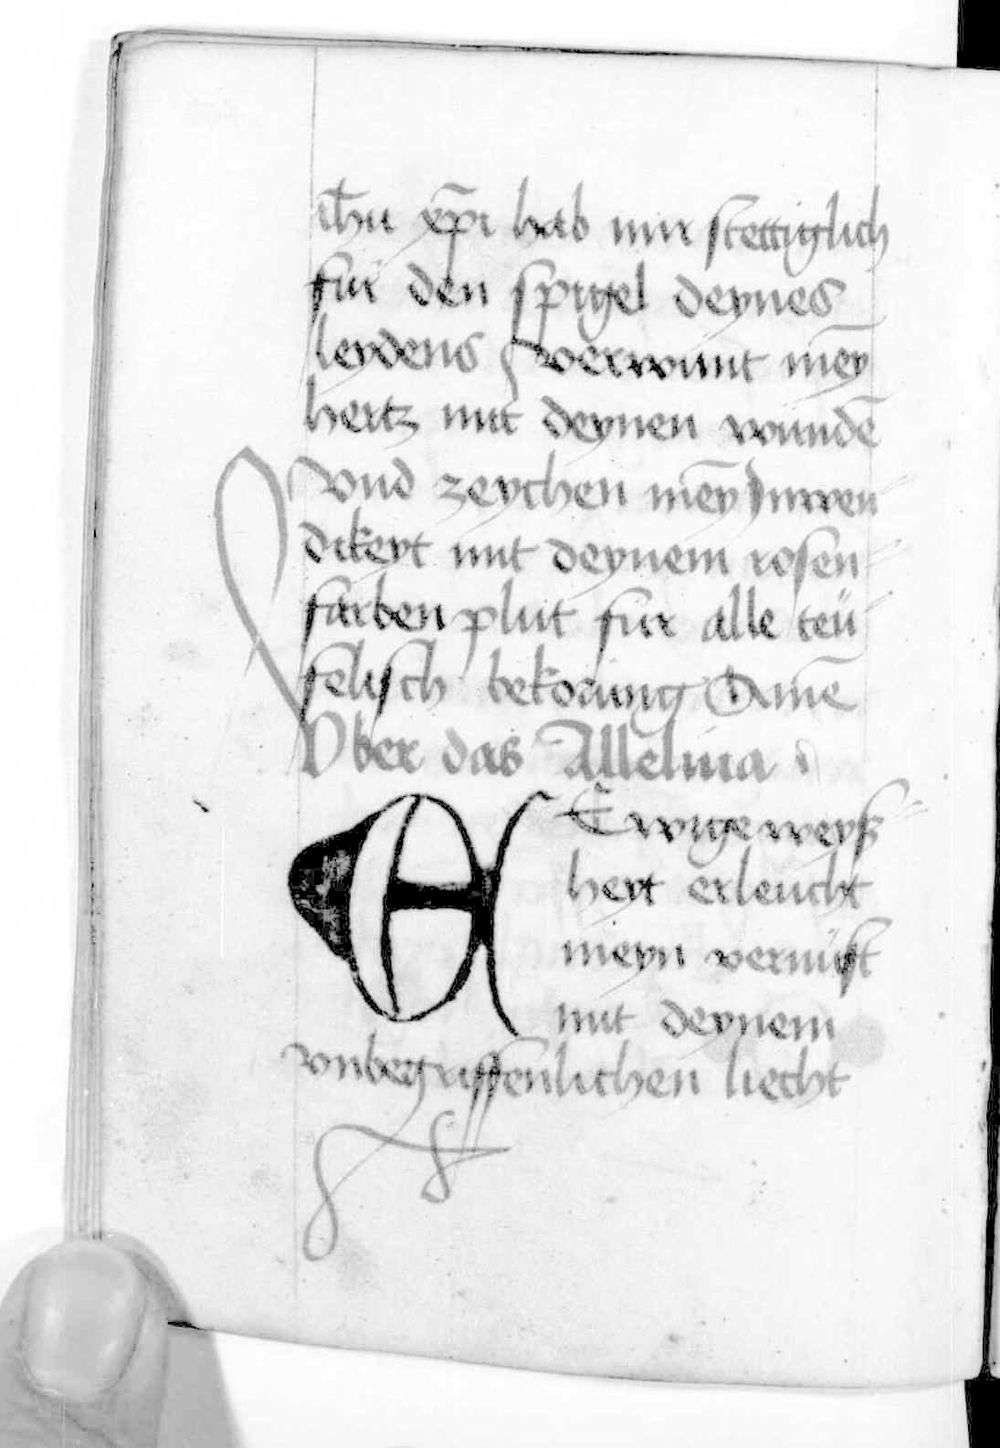 ih̄u xp̄i hab mir stettiglich
für den spigel deynes
leydens verwunt mey̅
hertz mit deynen wunde̅
Vnd zeychen mey̅ Inwen
dikeyt mit deynem rosen
farben plut für alle teü
felisch bekorung Ame̅
Vber das Alleluia
O Ewige weyß
heyt erleucht
meyn vernüft
mit deynem
vnbegriffenlichen liecht